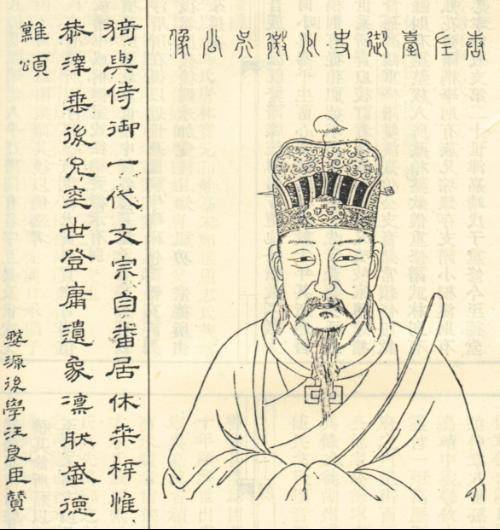 唐左臺御史少微吳公像
猗與侍御一代文宗自番居休桒梓惟
恭澤垂後昆奕世登庸遺象凜肰盛德
難頌
婺源後學汪良臣贊